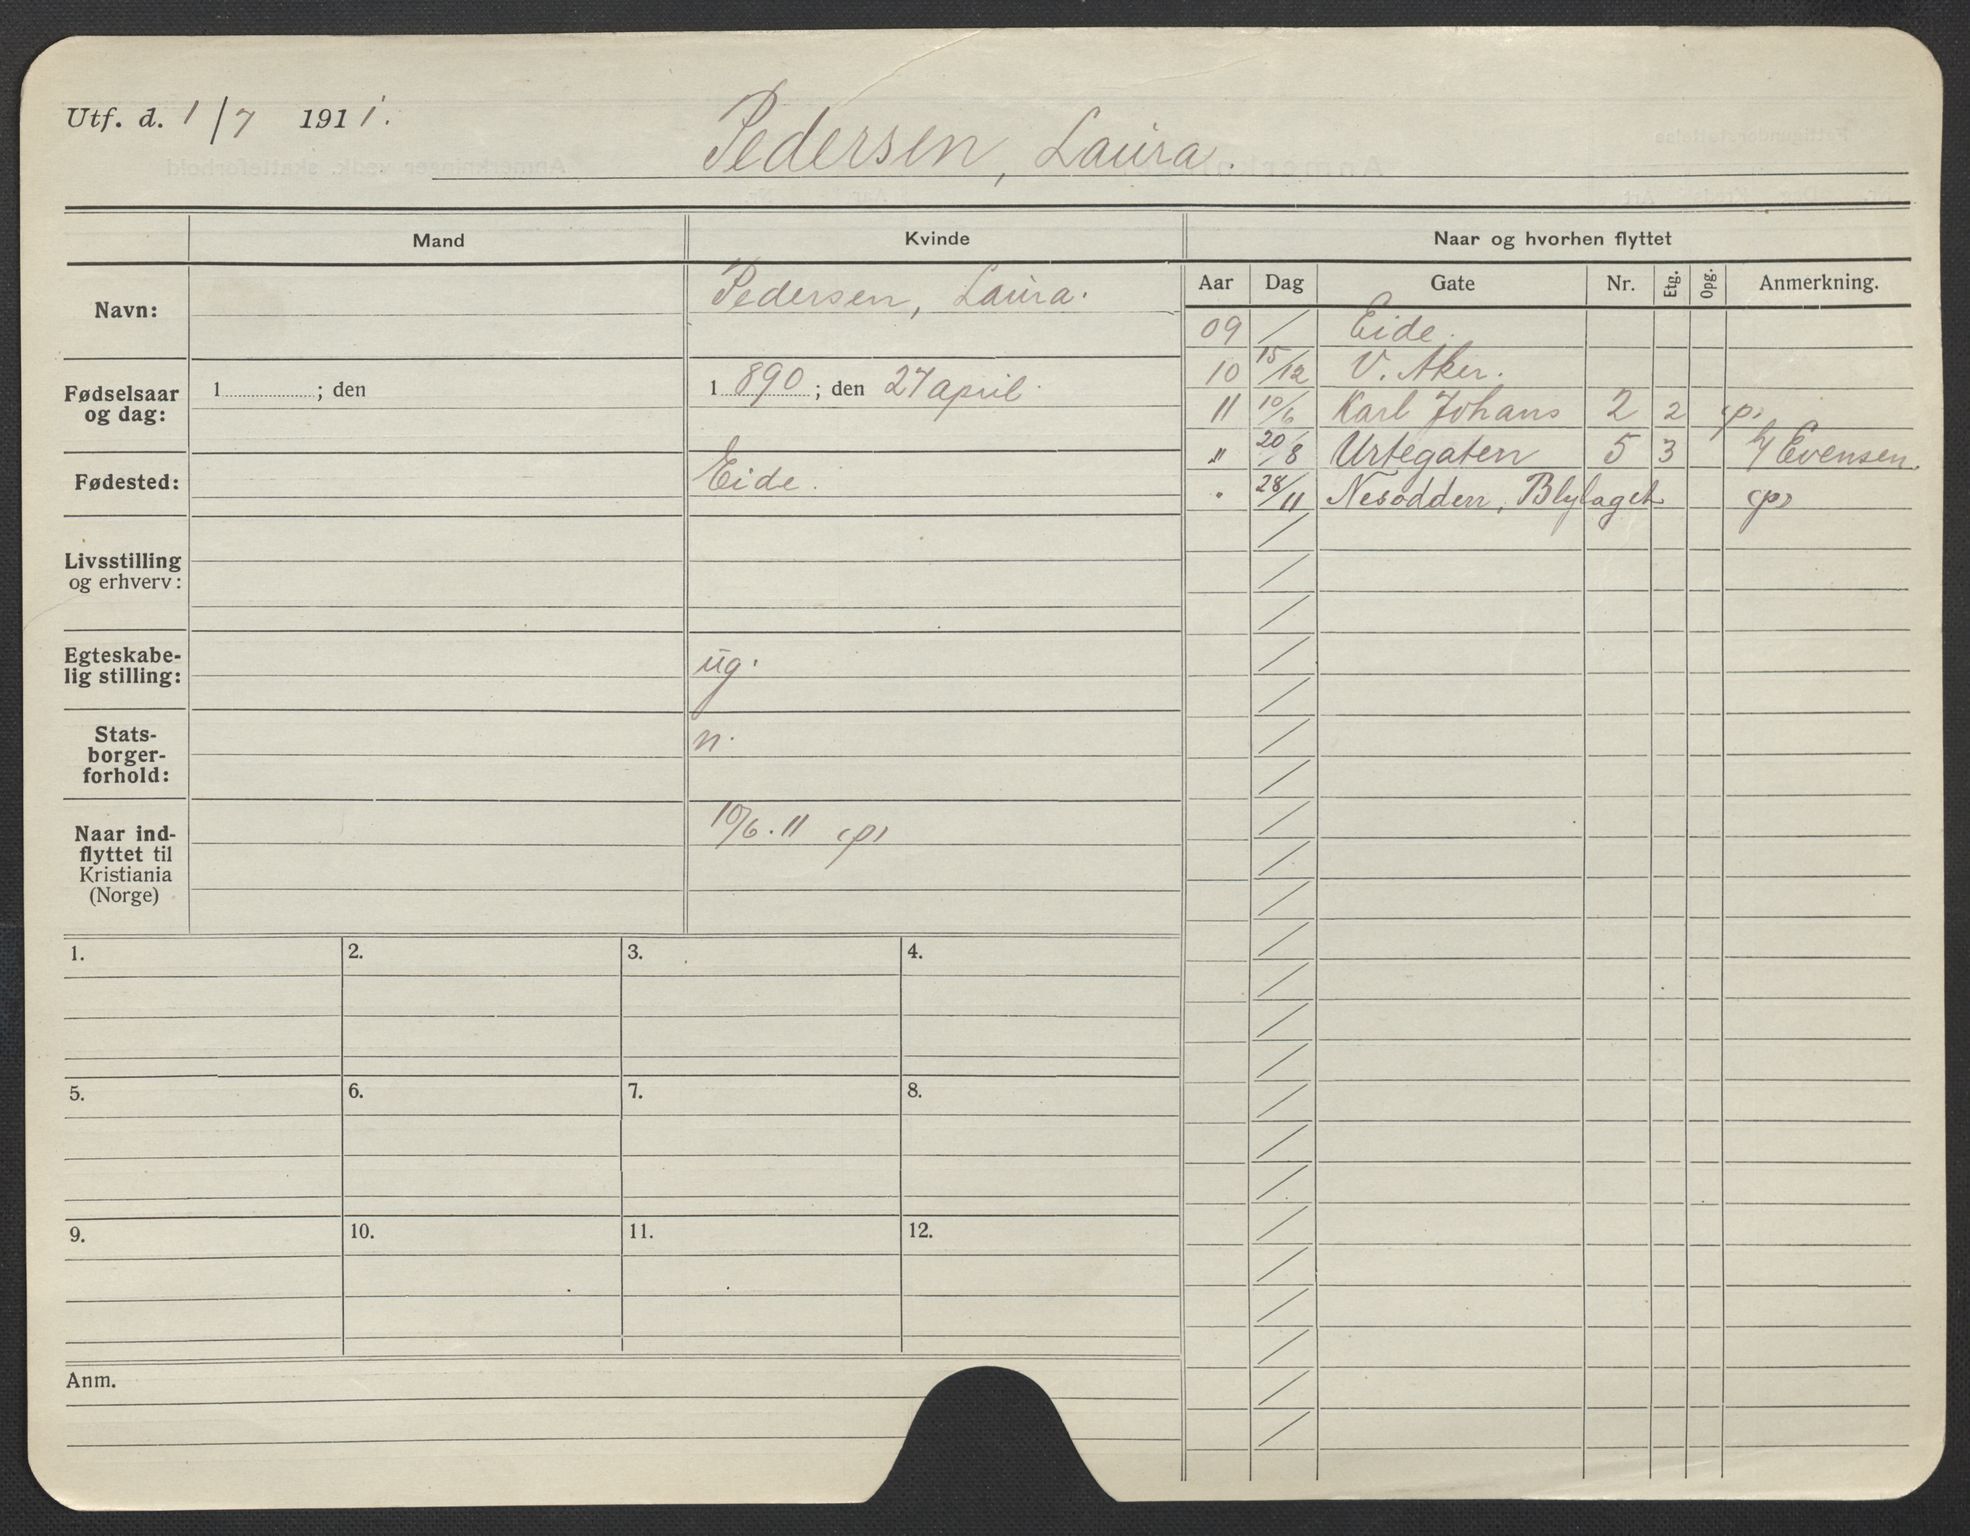 Utf. d. 1/7 1911.
Pedersen, Laura.
Mand Kvinde Naar og hvorhen flyttet
Navn: Pedersen, Laura.
Fødselsaar og dag: 1 ; den 1 890 ; den 27 april.
Fødested: Eide.
Livsstilling og erhverv:
Egteskabe-
lig stilling: ug.
Stats-
borger-
forhold: n.
Naar ind-
flyttet til
Kristiania
(Norge) 10/6. 11 (p)
Aar Dag Gate Nr. Etg. Opg. Anmerkning.
09 / Eide.
10 15/12 V. Aker.
11 10/6 Karl Johans 2 2 (p)
" 20/8 Urtegaten 5 3 Evensen.
" 28/11 Nesodden, Blylaget (p)
1. 2. 3. 4.
5. 6. 7. 8.
9. 10. 11. 12.
Anm.